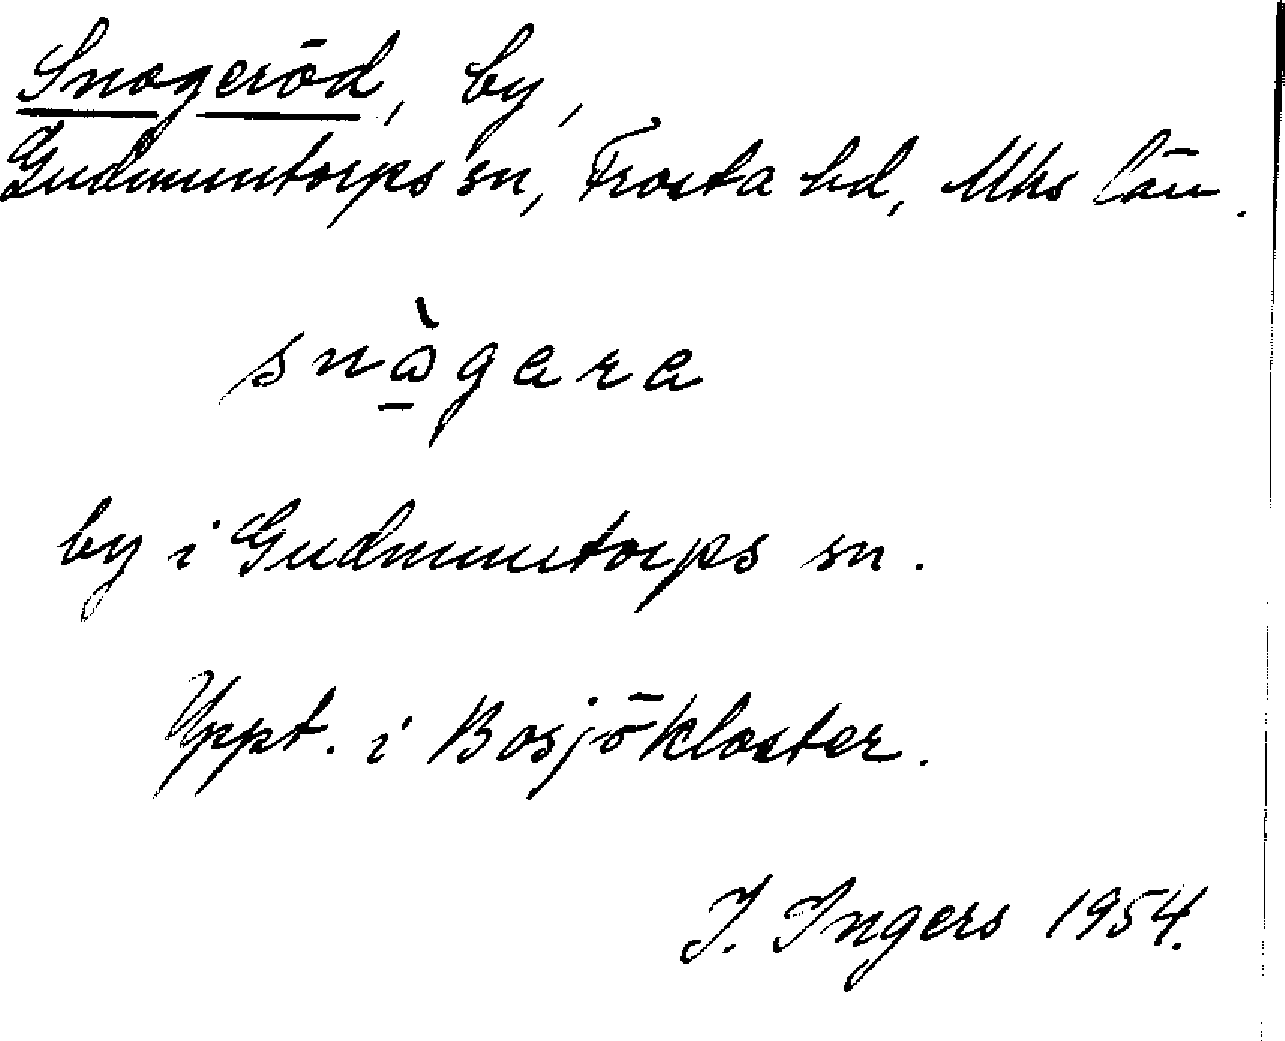 Snogeröd, by,
Gudmuntorps sn, Frosta hd, Mhs län.
snò̱gara
by i Gudmuntorps sn.
Uppt. i Bosjökloster.
I. Ingers 1954.